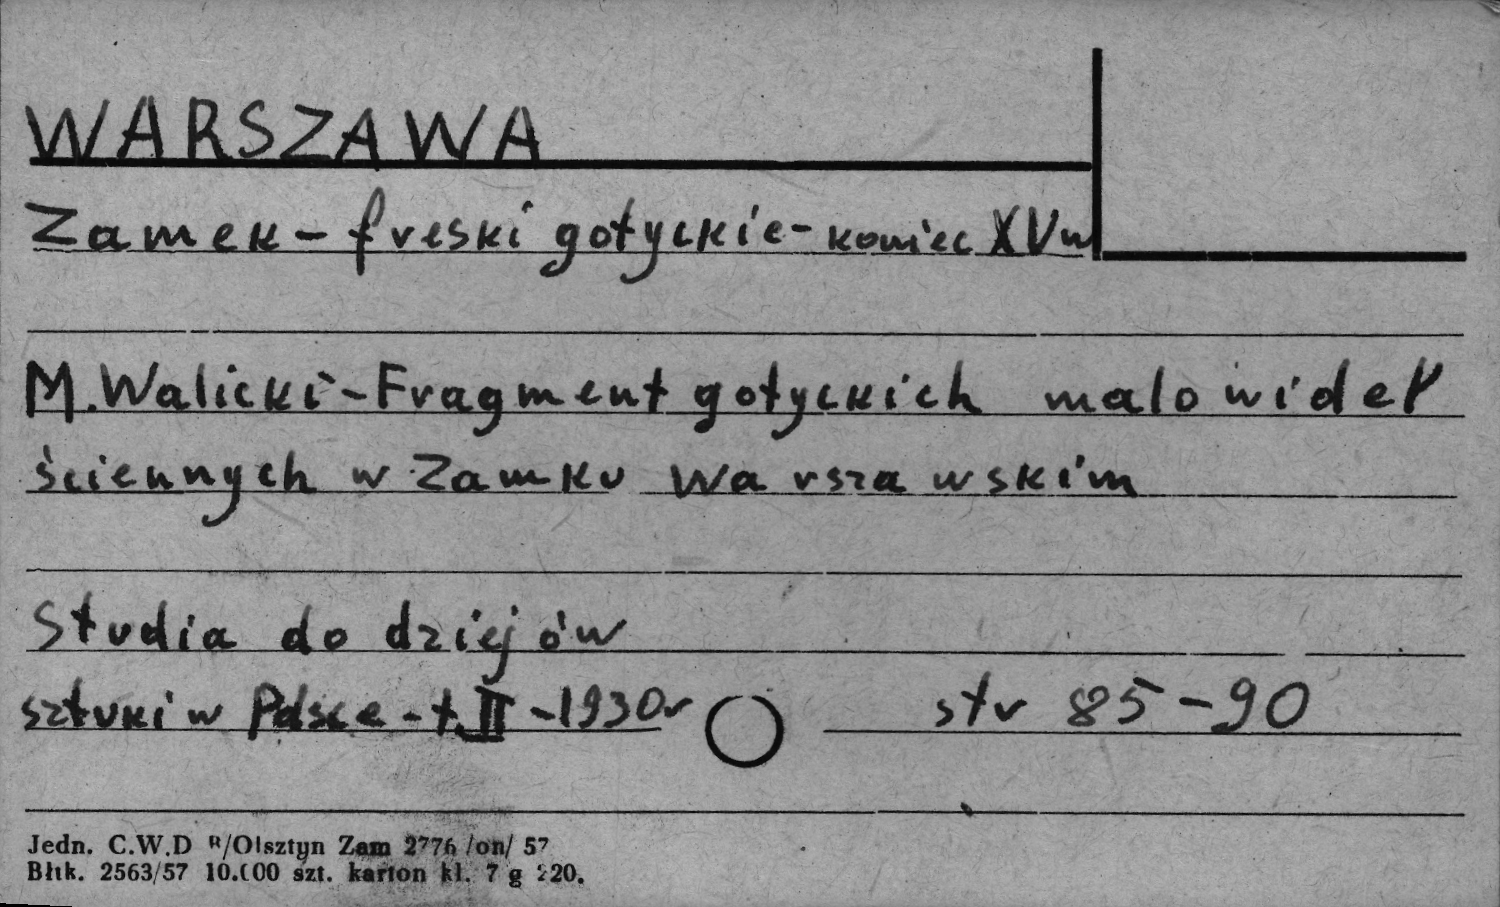 WARSZAWA
Zamek - freski gotyckie - koniec XV w
M. Walicki - Fragment gotyckich malowideł
ściennych w Zamku Warszawskim
Studia do dziejów
sztuki w Polsce - t. II - 1930 r str 85-90
Jedn. C.W.D R/Olsztyn Zam 2776 /on/ 57
Błtk. 2563/57 10.000 szt. karton kl. 7 g 220.